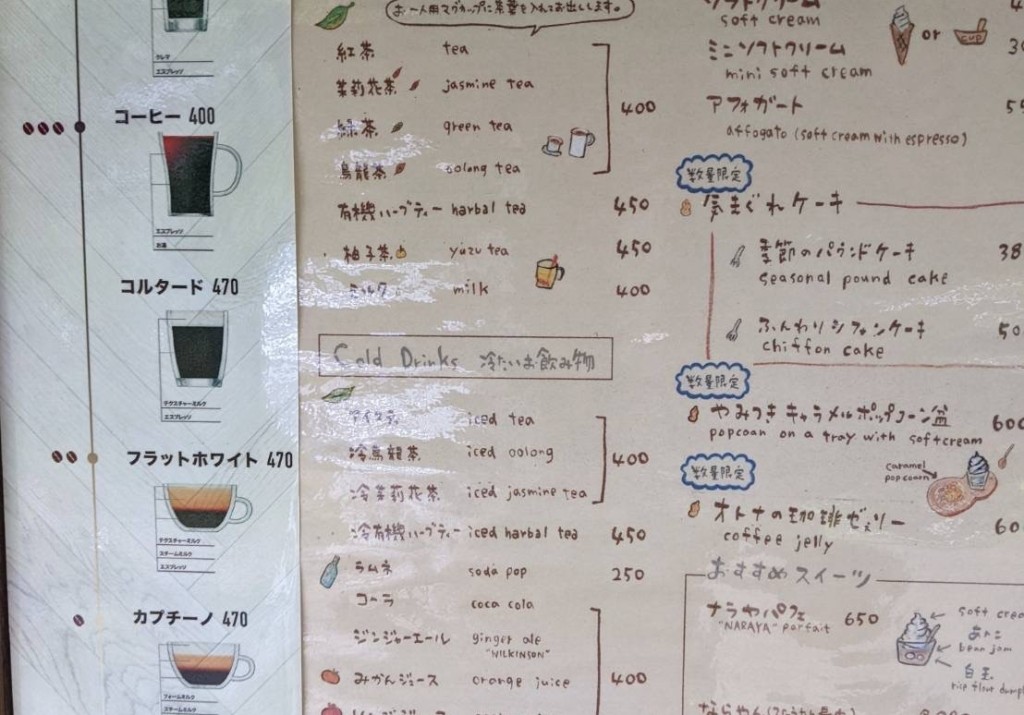 クレマ
エスプレッソ
コーヒー 400
エスプレッソ
お湯
コルタード 470
テクスチャーミルク
エスプレッソ
フラットホワイト 470
テクスチャーミルク
スチームミルク
エスプレッソ
カプチーノ 470
フォームミルク
スチームミルク
お一人用マグカップに茶葉を入れてお出しします。
紅茶 tea
茉莉花茶 jasmine tea
緑茶 green tea
烏龍茶 oolong tea
400
有機ハーブティー harbal tea 450
柚子茶 yuzu tea 450
ミルク milk 400
Cold Drinks 冷たいお飲み物
アイスティ iced tea
冷烏龍茶 iced oolong
冷茉莉花茶 iced jasmine tea
400
冷有機ハーブティー iced harbal tea 450
ラムネ soda pop 250
コーラ coca cola
ジンジャーエール ginger ale
"WILKINSON"
みかんジュース orange juice 400
ソフトクリーム
soft cream
or CUP
ミニソフトクリーム
mini soft cream
アフォガート
affogato (soft cream with espresso)
数量限定
気まぐれケーキ
季節のパウンドケーキ 38
seasonal pound cake
ふんわりシフォンケーキ 50
chiffon cake
数量限定
やみつきキャラメルポップコーン盆 600
popcoan on a tray with softcream
caramel
popcoan
数量限定
オトナの珈琲ゼェリー 60
coffee jelly
おすすめスイーツ
ナラヤパフェ 650
"NARAYA" parfait
soft crea
あんこ
bean jam
白玉
rice flour dumpl